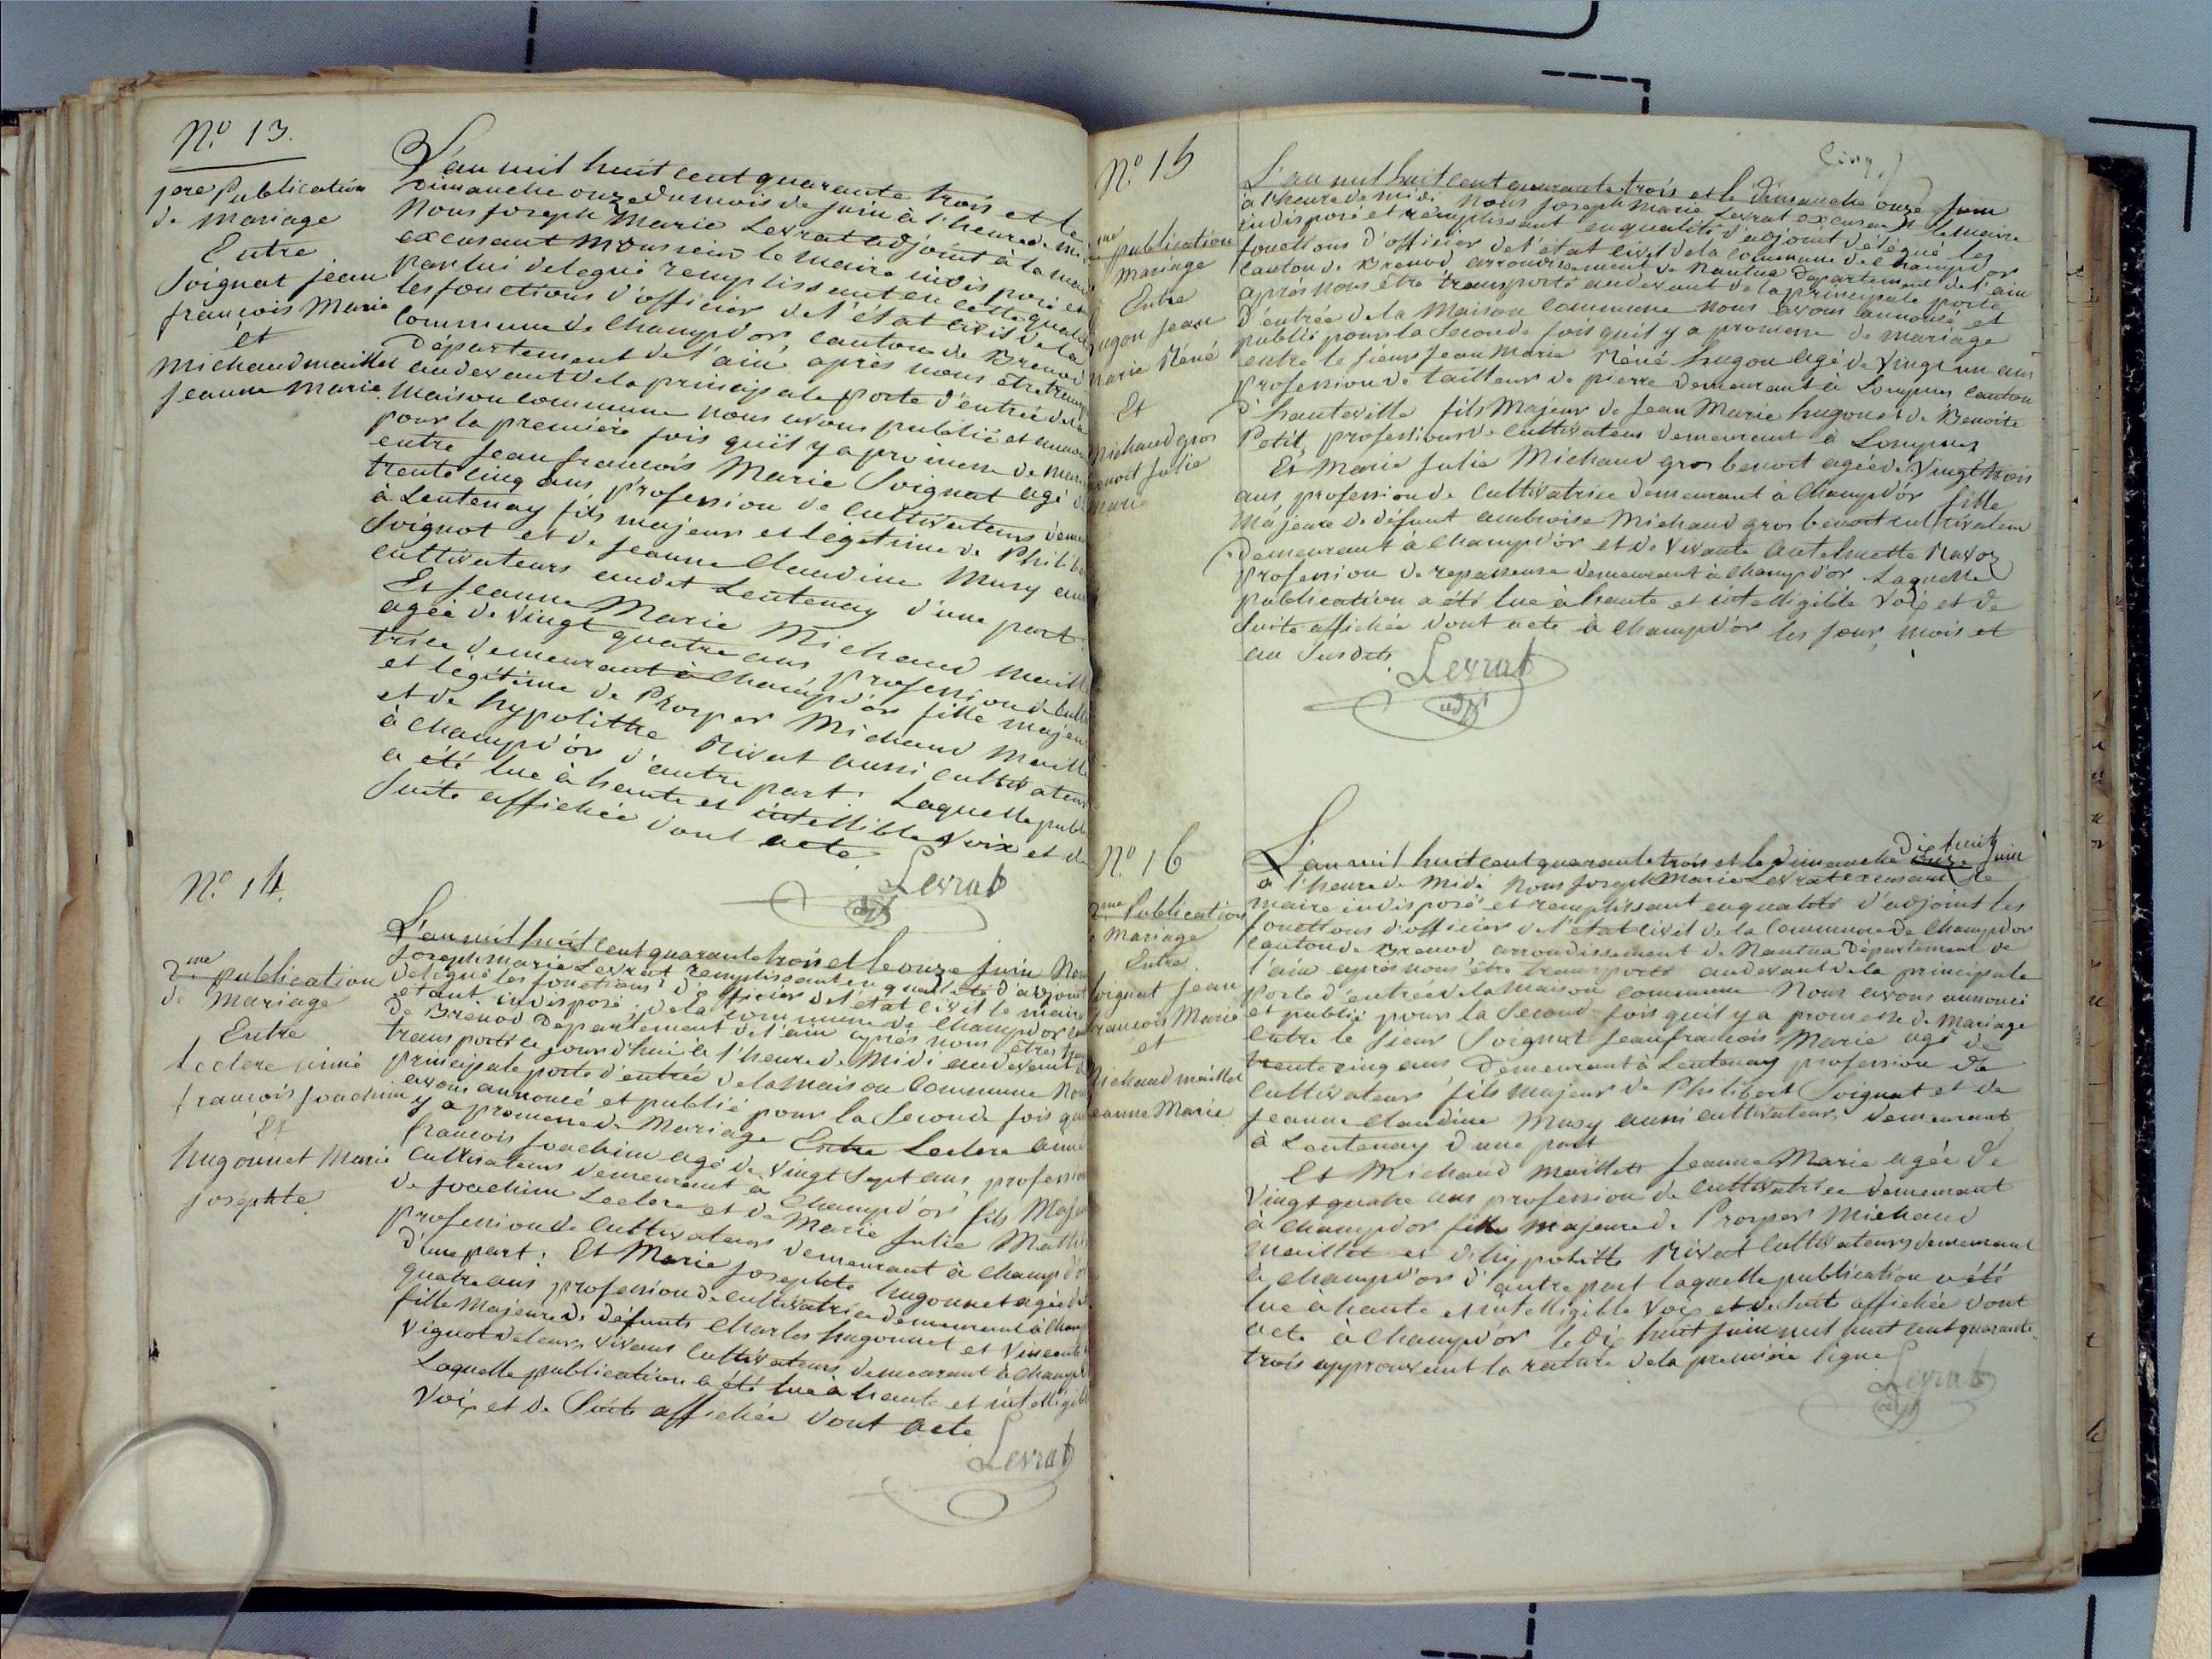 N° 13.
1ere Publication
de mariage
Entre
Soignat jean
françois Marie
et
Michaud maillet
jeanne Marie
L'an mil huit cent quarante trois et le
Dimanche onze du mois de juin à l'heure de mi
Nous joseph Marie Levrat adjoint à la mai
excusant Monsieur le maire indisposé et
par lui delegué remplissant en cette qualité
les fonctions d'officier de l'état civil de la
Commune de Champd'or, canton de Brenod
Département de l'ain après nous être trans
au devant de la principale porte d'entrée de la
Maison Commune nous avons publié et annon
pour la premiere fois qu'il y a promesse de mari
entre jean françois Marie Soignat agé de
trente cinq ans profession de cultivateur deme
à Lentenay fils majeur et légitime de Philib
Soignat et de jeanne Claudine Musy
cultivateurs audit Lentenay d'une part
Et jeanne Marie Michaud Maill
agée de vingt quatre ans, profession de culti
trice demeurant à Champd'or fille majeu
et légitime de Prosper Michaud Maill
et de hypolitte Rivat aussi cultivateur
à Champd'or d'autre part. Laquelle publi
a été lue à haute et intellible voix et de
suite affichée dont acte.
Levrat
adjt
N° 14.
2me publication
de Mariage
Entre
Leclerc aimé
françois joachim
Et
hugonnet Marie
josephte
L'an mil huit cent quarante trois et le onze juin Nous
joseph marie Levrat remplissant en qualité d'adjoint
delegué les fonctions d'officier de l'état civil le maire
étant indisposé, de la Commune de Champd'or can
de Brenod Département de l'ain après nous être
transporté ce jourd'hui à l'heure de Midi au devant de
principale porte d'entrée de la Maison Commune Nous
avons annoncé et publié pour la Seconde fois qu
y a promesse de Mariage Entre Leclerc aimé
françois joachim agé de vingt Sept ans profession
Cultivateur demeurant à Champd'or fils Majeur
de joachim Leclerc et de Marie julie Math
profession de Cultivateurs demeurant à Champd'or
d'une part. Et Marie josephte hugonnet agée de
quatre ans profession de cultivatrice demeurant à Champ
fille Majeure de défunts Charles hugonnet et Vincente
Vignot de leurs vivans Cultivateurs demeurant à Champd
Laquelle publication a été lue à haute et intelligib
Voix et de Suite affichée dont acte
Levrat
N° 15
me publication
Mariage
Entre
ugon jean
Marie Réné
Et
Michaud gros
benoit julie
Marie
Cinq
L'an mil huit cent quarante trois et le Dimanche onze juin
à l'heure de midi Nous joseph Marie Levrat excusant le maire
indisposé et remplissant en qualité d'adjoint délégué les
fonctions d'officier de l'état civil de la Commune de Champd'or
Canton de Brenod arrondissement de Nantua Département de l'ain
après nous être transporté au devant de la principale porte
d'entrée de la Maison Commune nous avons annoncé et
publié pour la Seconde fois qu'il y a promesse de mariage
entre le sieur jean Marie Réné hugon agé de vingt un ans
profession de tailleur de pierre demeurant à Lompnes canton
d'hauteville fils Majeur de jean Marie hugon et de Benoite
Petit, profession de Cultivateurs demeurant à Lompnes
Et Marie julie Michaud gros benoit agée de vingt trois
ans profession de cultivatrice demeurant à Champd'or fille
Majeure de défunt ambroise Michaud gros benoit cultivateur
Demeurant à Champd'or et de vivante antelmette Ravoz
profession de repasseuse demeurant à Champd'or Laquelle
publication a été lue à haute et intelligible Voix et de
Suite affichée dont acte à Champd'or les jour, mois et
an Susdits.
Levrat
adjt
N° 16
2me Publication
Mariage
Entre
Soignat jean
françois Marie
et
Michaud maillet
jeanne Marie
L'an mil huit cent quarante trois et le dimanche onze Dix huit juin
à l'heure de Midi Nous joseph Marie Levrat excusant le
maire indisposé et remplissant en qualité d'adjoint les
fonctions d'officier de l'état civil de la Commune de Champd'or
Canton de Brenod arrondissement de Nantua Département de
l'ain après nous être transporté au devant de la principale
porte d'entrée de la maison commune Nous avons annoncé
et publié pour la Second fois qu'il y a promesse de Mariage
Entre le sieur Soignat jean françois Marie agé de
trente cinq ans Demeurant à Lentenay profession de
Cultivateur fils majeur de Philibert Soignat et de
jeanne Claudine Musy aussi cultivateurs demeurant
à Lentenay d'une part
Et Michaud Maillet jeanne Marie agée de
Vingt quatre ans profession de cultivatrice demeurant
à Champd'or fille majeure de Prosper Michaud
maillet et d'hypolitte Rivat Cultivateurs demeurant
à Champd'or d'autre part laquelle publication a été
lue à haute et intelligible voix et de suite affichée dont
acte à Champd'or le dix huit juin mil huit cent quarante
trois approuvant la rature de la première ligne
Levrat
adjt